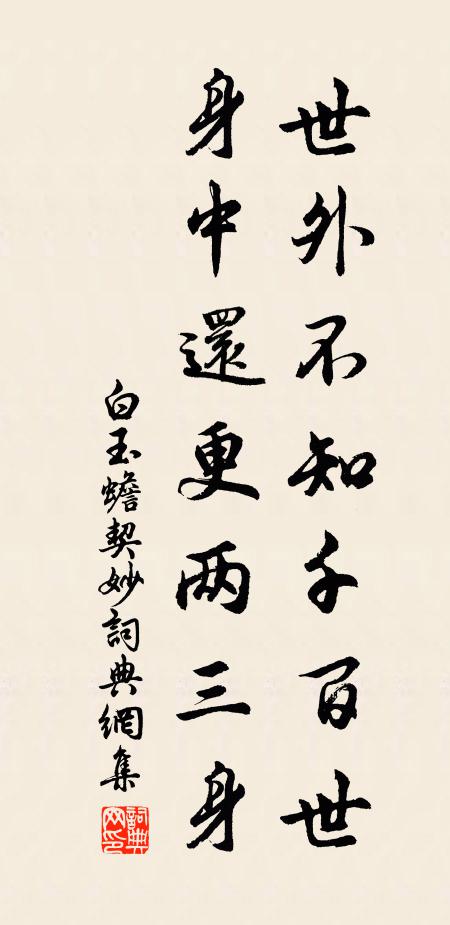 世外不知千百世
身中還更两三身
白玉蟾契妙詞典網集
詞典网印